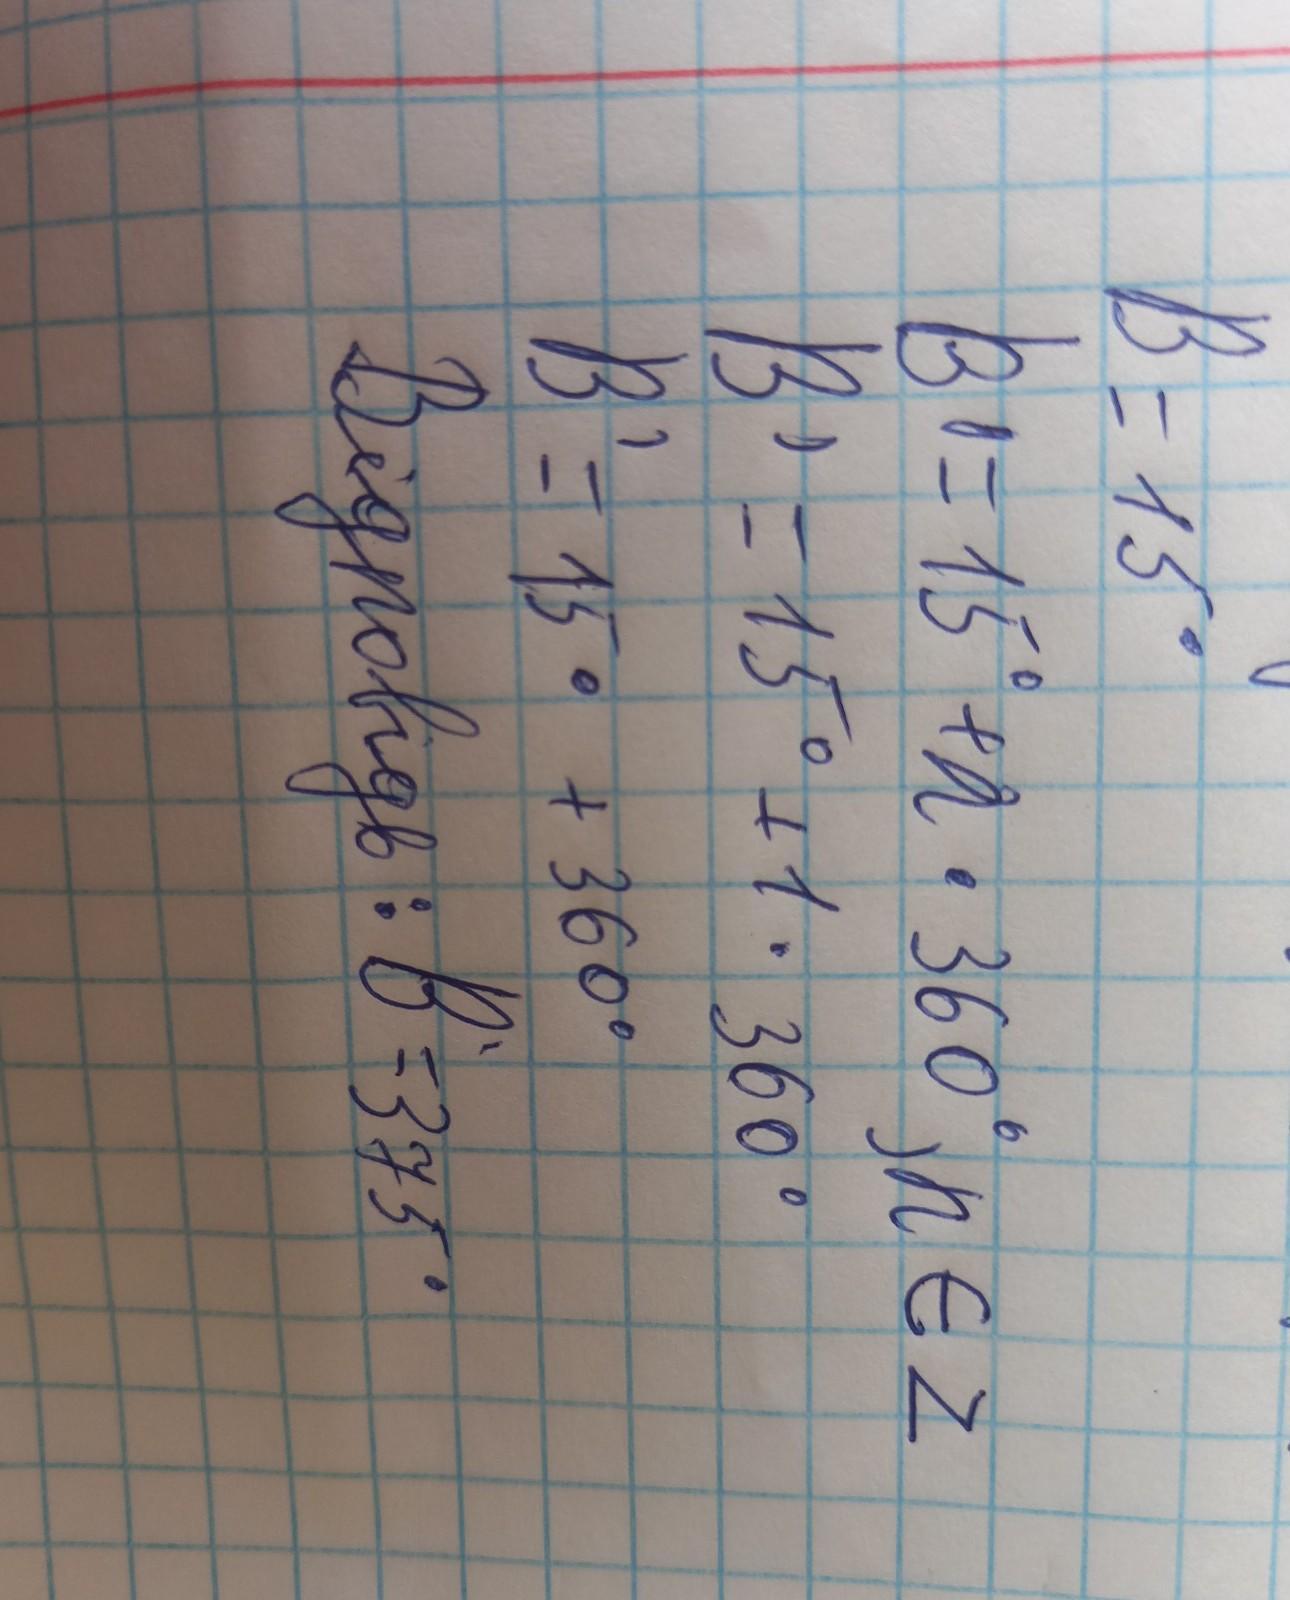 β = 15°
β' = 15° + n · 360°, n ∈ Z
β' = 15° + 1 · 360°
β' = 15° + 360°
Відповідь: β' = 375°